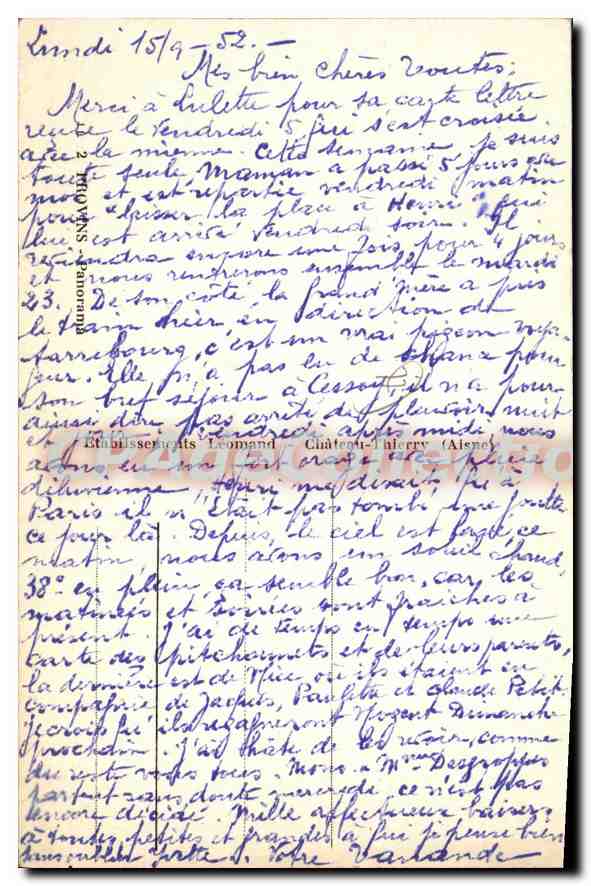 Lundi 15/9 - 52. -
Mes bien chères toutes,
Merci à Lulette pour sa carte lettre
reçue le vendredi 5 qui s'est croisée
avec la mienne. Cette semaine je suis
toute seule, Maman a passé 5 jours avec
moi et est repartie vendredi matin
pour "laisser la place à Henri" qui
lui est arrivé vendredi soir. Il
reviendra encore une fois pour 4 jours
et nous rentrerons ensemble le mardi
23. De son côté la grand'mère a pris
le train hier en direction de
c'est un vrai pigeon voya-
geur. Elle n'a pas eu de chance pour
son bref séjour à Cessoy, il n'a pour
ainsi dire pas arrêté de pleuvoir nuit
et vendredi après-midi nous
avons eu un fort orage avec pluie
diluvienne, Henri me disait qu'à
Paris il n'était pas tombé une goutte
ce jour là. Depuis, le ciel est ce
matin, nous avons un soleil chaud,
38° en plein, ça semble bon, car les
matinées et soirées sont fraîches à
présent. J'ai de temps en temps une
carte des pitchounets et de leurs parents,
la dernière est de Nice, où ils étaient en
compagnie de Jacques, Paulette et Claude Petit.
je crois qu'ils regagneront Nogent Dimanche
prochain. J'ai hâte de les revoir, comme
du reste vous tous. Mons. & Mme Desgroppes
partent sans doute mercredi, ce n'est pas
encore décidé. Mille affectueux baisers
à toutes petites et grandes à qui je pense bien
sans oublier Votre
2 PROVINS - Panorama
Etablissements Léomand Château-Thierry (Aisne)